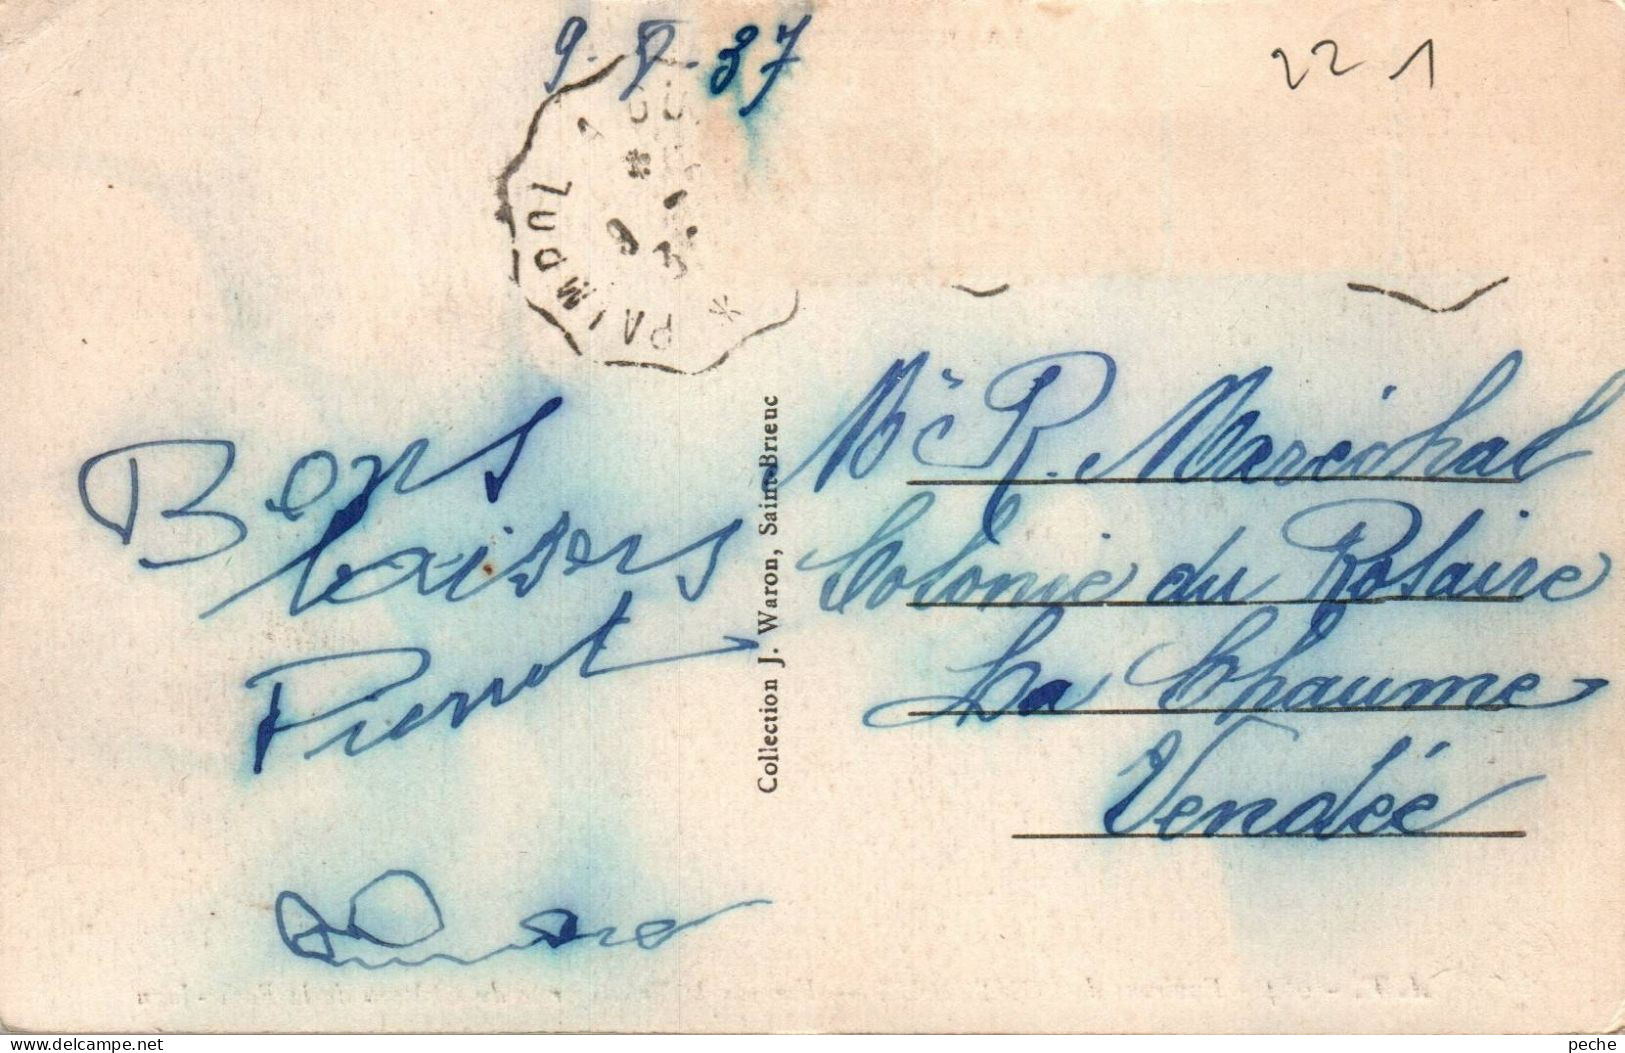 9-8-37
221
PAIMPOL A GU
Bons
baisers
Pierrot
Collection J. Waron, Saint-Brieuc
Mr R. Maréchal
Colonie du Rosaire
La Chaume
Vendée
peche
www.delcampe.net